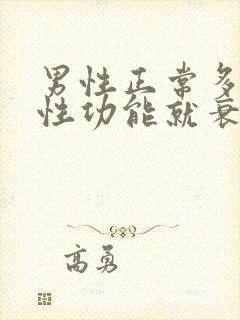 男性正常多
性功能就衰
高勇